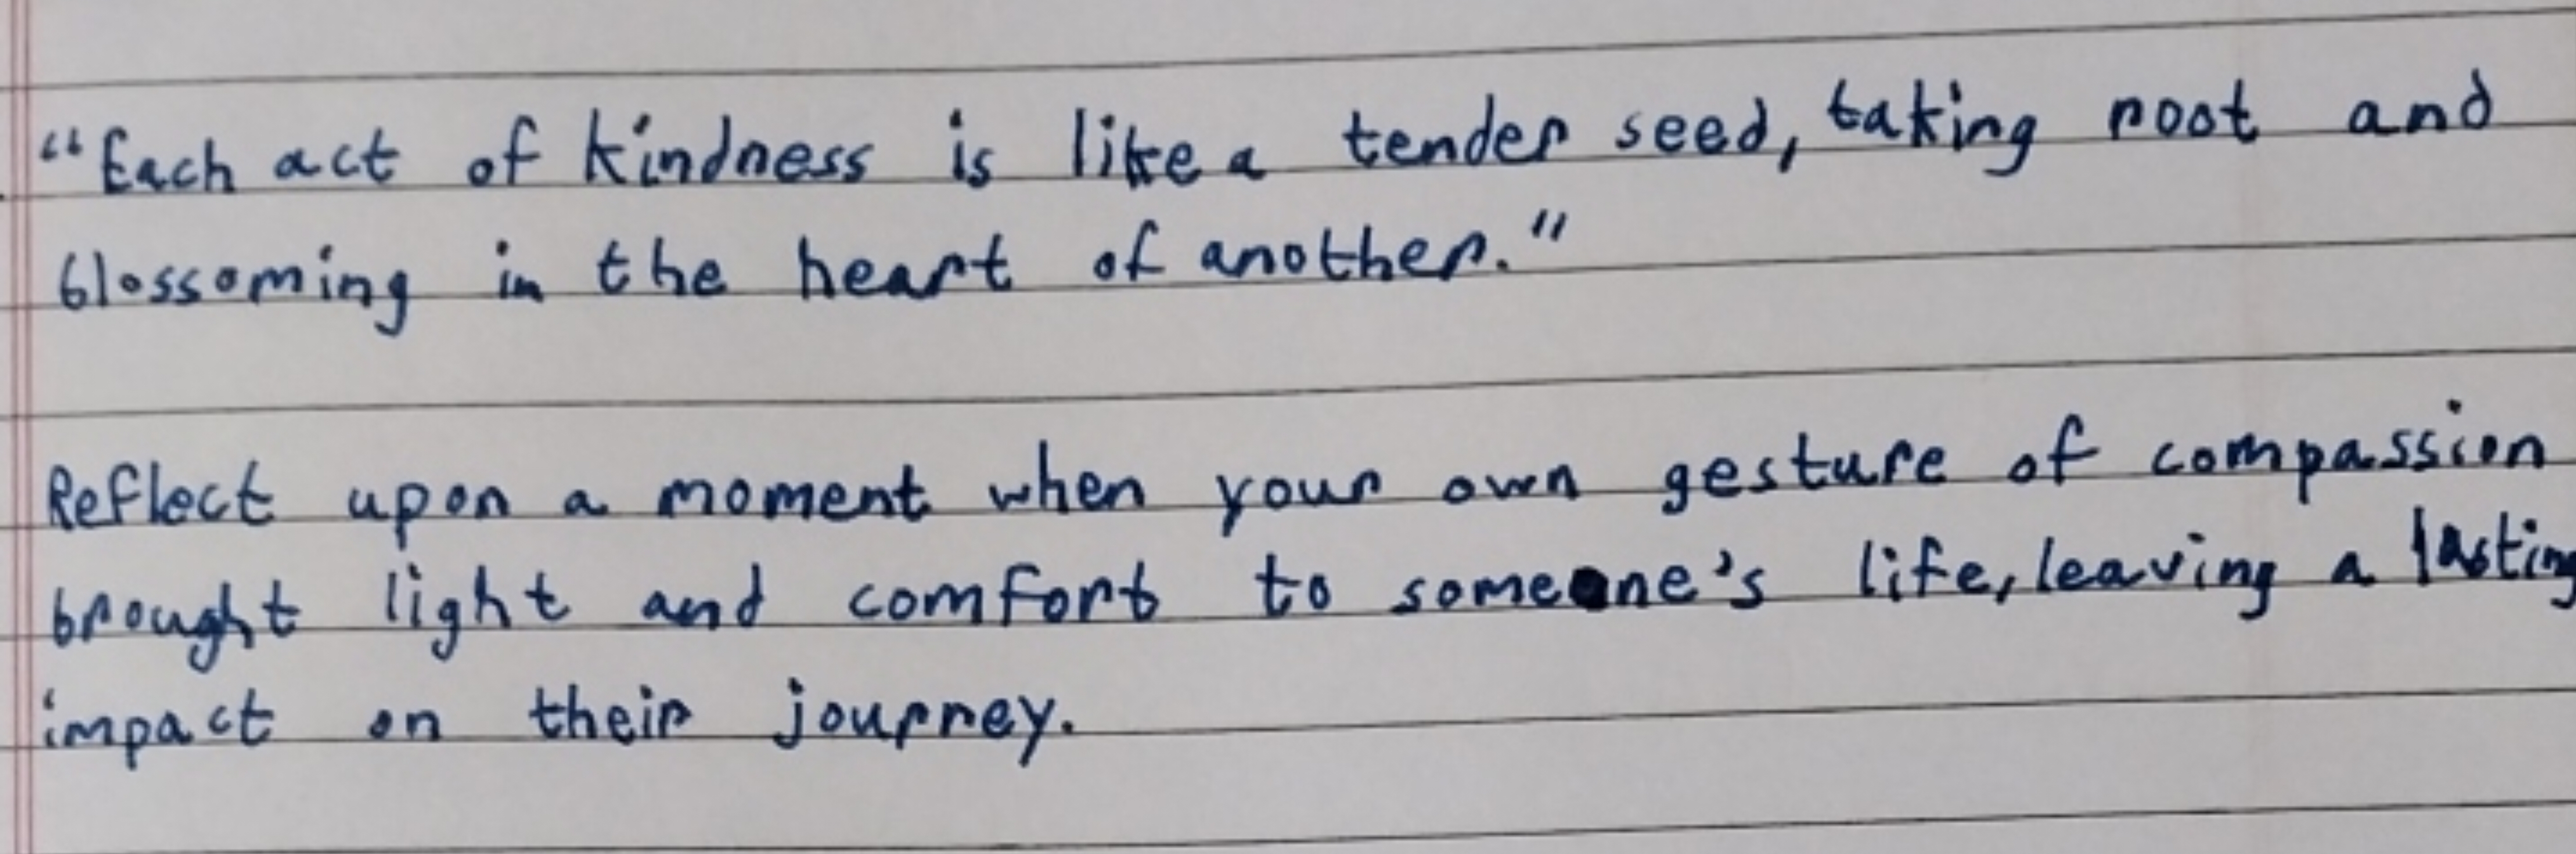 "Each act of kindness is like a tender seed, taking root and
blossoming in the heart of another."
Reflect upon a moment when your own gesture of compassion
brought light and comfort to someone's life, leaving a lasting
impact on their journey.